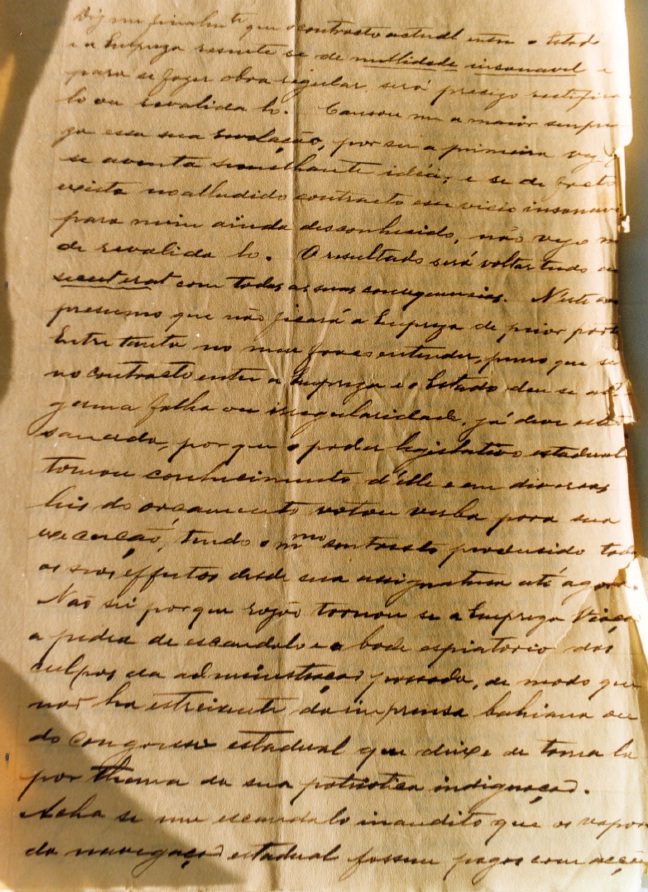 Diz me finalmte que o contrasto actual entre o Estado
e a Empreza resente se de nullidade insanavel e
para se fazer obra regular será preciso rectifica
lo ou revalida lo. Causou me a maior surpre
za essa sua revelação, por ser a primeira vez q
se aventa semelhante idéia, e se de facto
existe no alludido contracto esse vicio insanav
para mim ainda desconhecido, não vejo m
de revalida lo. O resultado será voltar tudo
com todas as suas consequencias. Neste
presumo que não ficará a Empreza de pior par
Entre tanto no meu fraco entender, penso que se
no contrasto entre a Empreza e o Estado deu se al
guma falha ou irregularidade, já deve estar
sanada, por que o poder legislativo estadual
tomou conhecimento d'elle e em diversas
leis do orçamento votou verba para sua
execução, tendo o mmo contrasto produsido todos
os seos effeitos desde sua assignatura até agora.
Não sei por que rasão tornou se a Empreza Viação
a pedra de escandalo e o bode espiatorio das
culpas da administração passada, de modo que
não ha estreiante da imprensa bahiana ou
do congresso estadual que deixe de toma la
por thema da sua patriotica indignação.
Acha se um escandalo inaudito que os vapor
da navegação estadual fossem pagos com acções